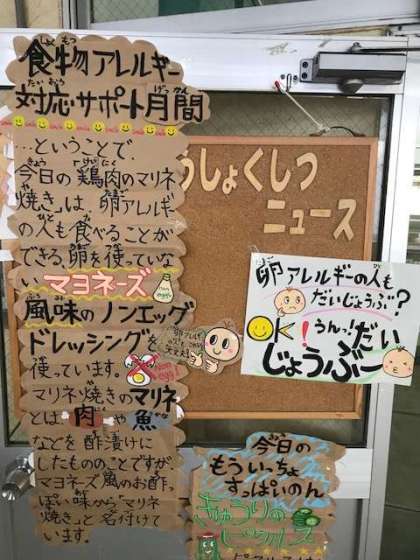 食物アレルギー
対応・サポート月間
…ということで、
今日の「鶏肉のマリネ
焼き」は、卵アレルギー
の人も食べることが
できる、卵を使っていな
い マヨネーズ
風味のノンエッグ
ドレッシングを
使っています。
マリネ焼きのマリネ
とは、肉や魚
などを酢漬けに
したもののことですが
マヨネーズ風のお酢っ
ぽい味から「マリネ
焼き」と名付けて
います。
うしょくしつ
ニュース
卵アレルギーの人も
だいじょうぶ?
OK!うんっ!だい
じょうぶー
今日の
もういっちょ
すっぱいのん
きゅうりの
ピクルス